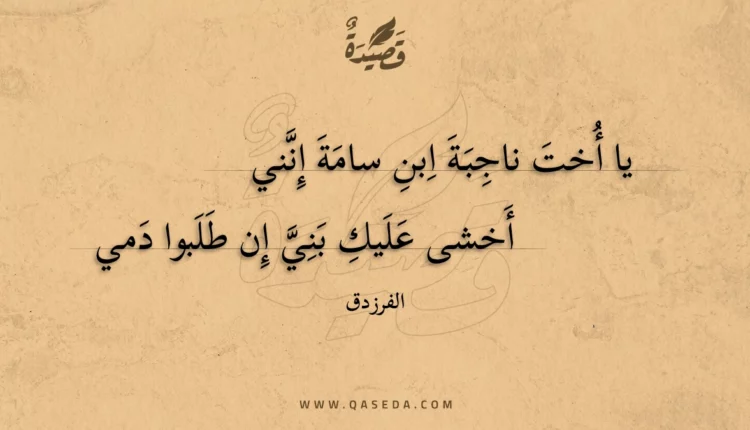 قَصِيْدَةٌ
يا أُختَ ناجِبَةَ اِبنِ سامَةَ إِنَّني
أَخشى عَلَيكِ بَنِيَّ إِن طَلَبوا دَمي
الفرزدق
WWW.QASEDA.COM